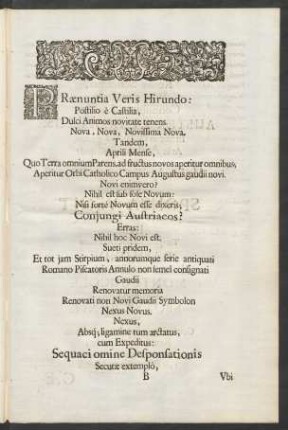 PRænuntia Veris Hirundo:
Postilio è Castilia,
Dulci Animos novitate tenens.
Nova, Nova, Novissima Nova.
Tandem,
Aprili Mense,
Quo Terra omnium Parens, ad fructus novos aperitur omnibus,
Aperitur Orbi Catholico Campus Augustus gaudii novi.
Novi enimvero?
Nihil est sub sole Novum:
Nisi forte Novum esse dixeris,
Conjungi Austriacos?
Erras:
Nihil hoc Novi est.
Sueti pridem,
Et tot jam Stirpium, annorumque serie antiquati
Romano Piscatoris Annulo non semel consignati
Gaudii
Renovatur memoria
Renovati non Novi Gaudii Symbolon
Nexus Novus.
Nexus,
Absq; ligamine tum arctatus,
cum Expeditus:
Sequaci omine Desponsationis
Securæ extemplò,
B Vbi